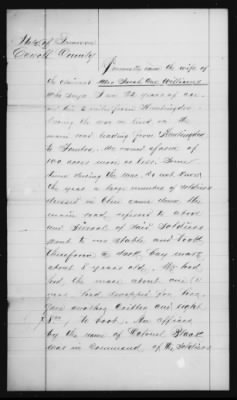 State of Tennessee
Carroll County
Personally came the wife of
the claimant Mrs Sarah Ann Williams
who says I am 52 years of age
and live 2 miles from Huntingdon
during the war we lived on the
main road leading from Huntingdon
to Trenton. We owned a farm of
100 acres more or less. Some
time during the war, do not know
the year a large number of soldiers
dressed in blue came down the
main road, referred to above
and several of said soldiers
went to our stable and took
therefrom a dark bay mare
about 8 years old. We had
had the mare about one (1)
year, had swapped for her,
gave another critter and eight
$8 00/ to boot. An officer
by the name of Colonel
was in command, of the soldiers